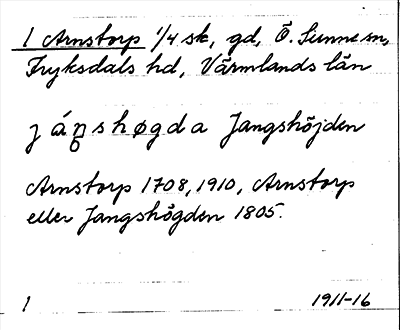 1 Arnstorp 1/4 sk, gd, Ö. Sunne sn,
Fryksdals hd, Värmlands län
j á ŋ s h ø g d a Jangshöjden
Arnstorp 1708, 1910, Arnstorp
eller Jangshögden 1805.
1 1911-16